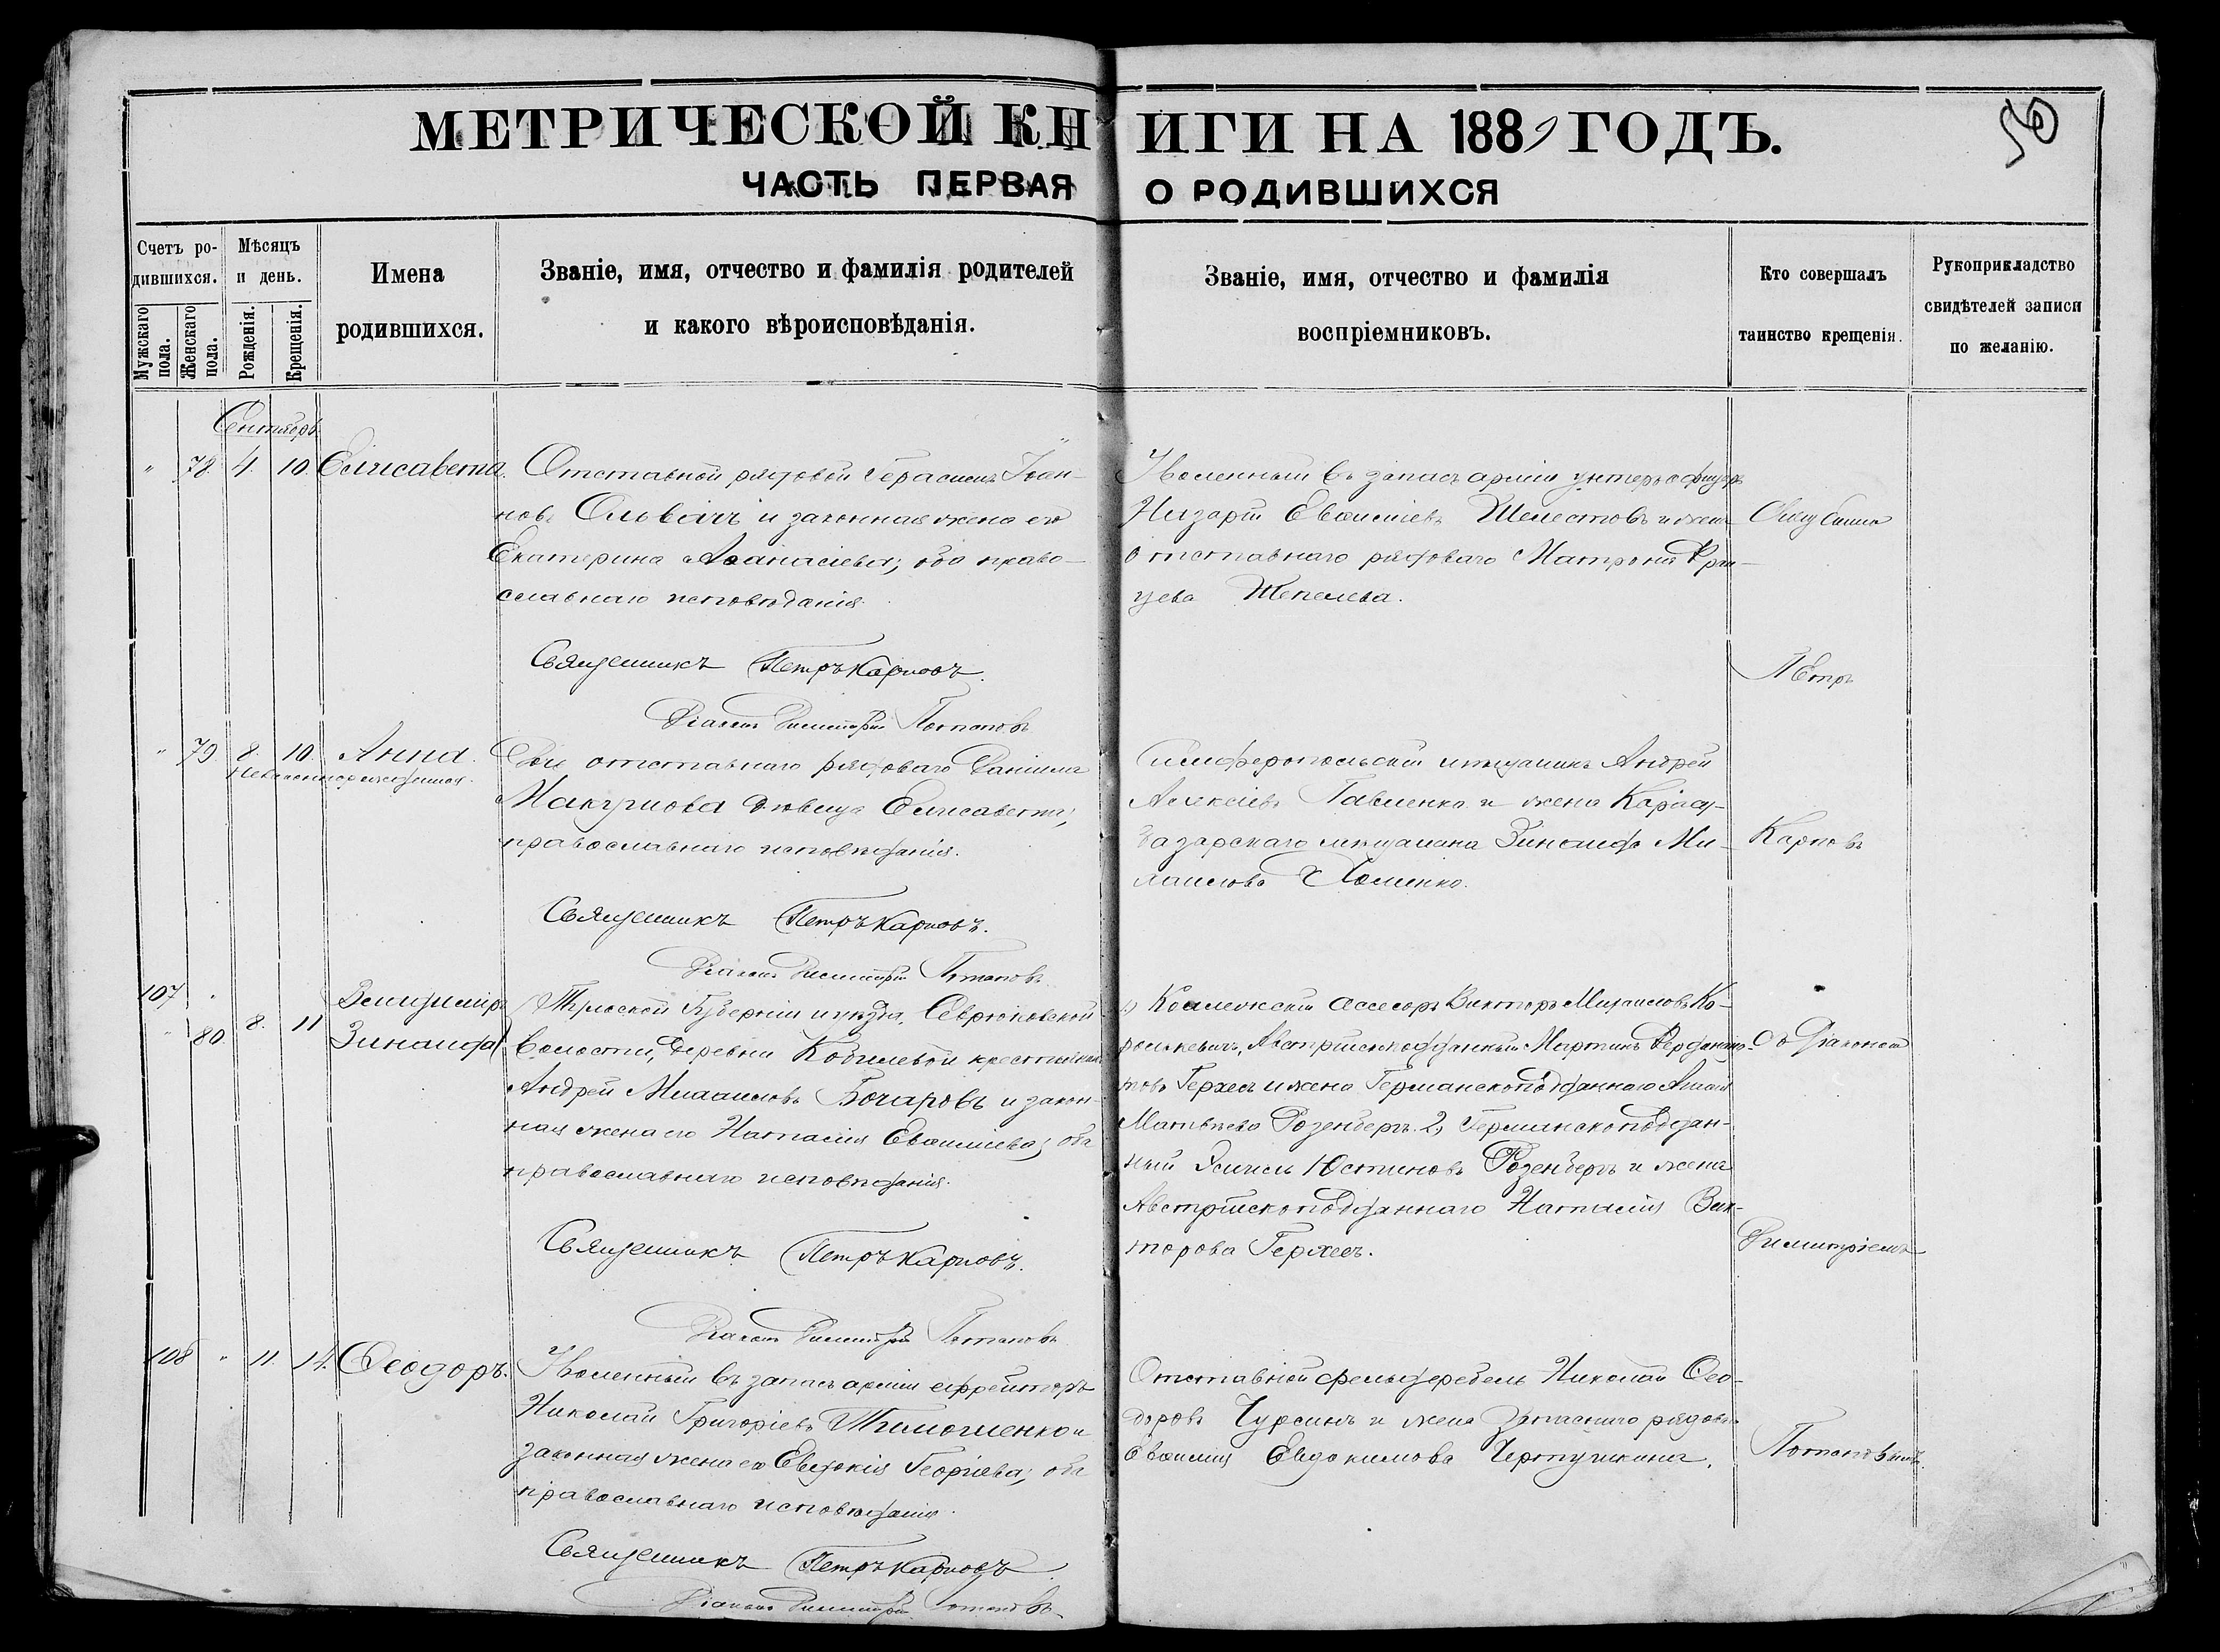 МЕТРИЧЕСКОЙ КНИГИ НА 1889 ГОДЪ.
50
ЧАСТЬ ПЕРВАЯ О РОДИВШИХСЯ
Счетъ ро-
дившихся.
Мужскаго пола.
Женскаго пола.
Мѣсяцъ
и день.
Рожденія.
Крещенія.
Имена
родившихся.
Званіе, имя, отчество и фамилія родителей
и какого вѣроисповѣданія.
Званіе, имя, отчество и фамилія
воспріемниковъ.
Кто совершалъ
таинство крещенія.
Рукоприкладство
свидѣтелей записи
по желанію.
Сентябрь
" 78. 4. 10 Елисавета.
Отставной рядовой Герасимъ Іоан-
новъ и законная жена его
Екатерина Аѳанасіева; оба право-
славнаго исповѣданія.
Священникъ Петръ Карповъ.
Діаконъ Димитрій Потаповъ
Уволенный въ запасъ арміи унтеръ-офицеръ
Назарій Евѳиміевъ Шелестовъ и жена
отставнаго рядоваго Матрона
Шепелева.
Священникъ
Петръ
" 79. 8. 10. Анна.
Незаконнорожденная.
Дочь отставнаго рядоваго Даніила
дѣвица Елисавета;
православнаго исповѣданія.
Священникъ Петръ Карповъ.
Діаконъ Димитрій Потаповъ
Симферопольскій мѣщанинъ Андрей
Алексіевъ Павленко и жена Карасу-
базарскаго мѣщанина Зинаида Ми-
хаилова Хоменко.
Карповъ
107 "
" 80. 8. 11
Владиміръ
Зинаида
Тульской Губерніи и уѣзда,
волости, деревни крестьянинъ
Андрей Михаиловъ Бочаровъ и закон-
ная жена его Наталія Евѳиміева; оба
православнаго исповѣданія.
Священникъ Петръ Карповъ.
Діаконъ Димитрій Потаповъ
1) Коллежскій ассесоръ Викторъ Михаиловъ Ко-
рольkевичъ, Австрійскоподданный Мартинъ Фердинан-
товъ Герхесъ и жена Германскоподданнаго
Матвѣева Розенбергъ. 2) Германскоподдан-
ный Юстиновъ Розенбергъ и жена
Австрійскоподданнаго Наталія Вик-
торова Герхесъ.
съ Діакономъ
Димитріемъ
108 " 11. 14. Ѳеодоръ.
Уволенный въ запасъ арміи ефрейторъ
Николай Григоріевъ Тимошенко и
законная жена его Евдокія Георгіева; оба
православнаго исповѣданія.
Священникъ Петръ Карповъ
Діаконъ Димитрій Потаповъ
Отставной фельдфебель Николай Ѳео-
доровъ Чурсинъ и жена запаснаго рядоваго
Евѳимія Евдокимова
Потаповымъ.